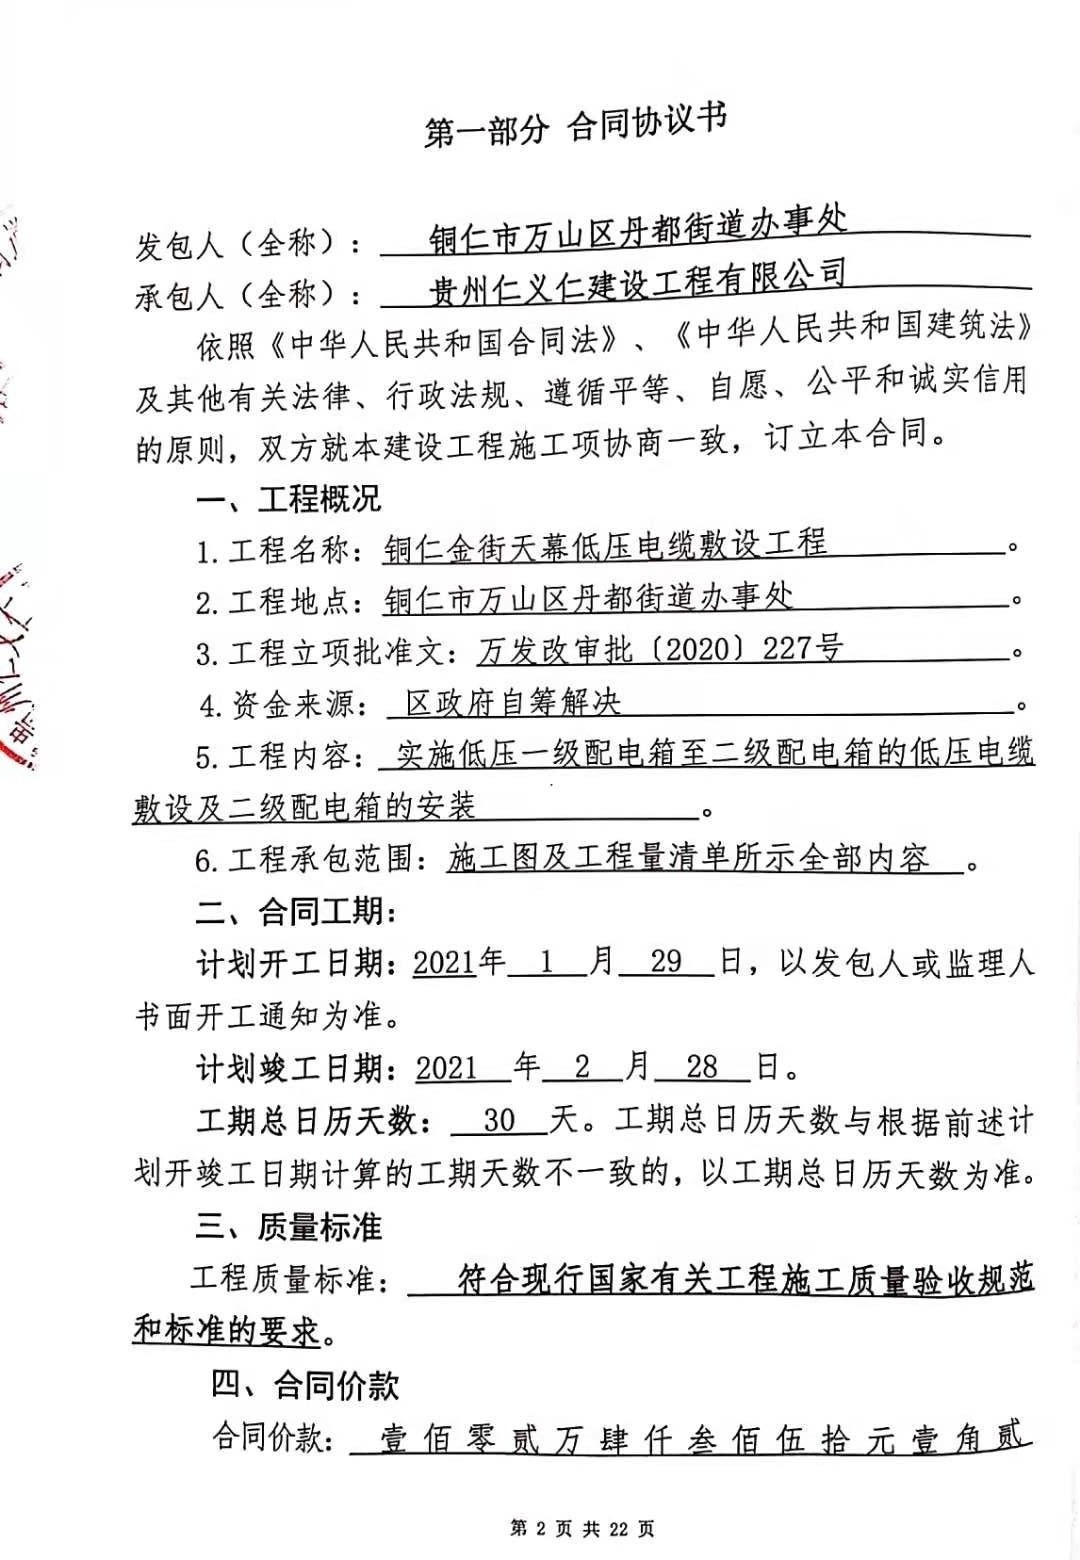 第一部分 合同协议书
发包人（全称）： 铜仁市万山区丹都街道办事处
承包人（全称）： 贵州仁义仁建设工程有限公司
依照《中华人民共和国合同法》、《中华人民共和国建筑法》
及其他有关法律、行政法规、遵循平等、自愿、公平和诚实信用
的原则，双方就本建设工程施工项协商一致，订立本合同。
一、工程概况
1.工程名称：铜仁金街天幕低压电缆敷设工程。
2.工程地点：铜仁市万山区丹都街道办事处。
3.工程立项批准文：万发改审批〔2020〕227号。
4.资金来源： 区政府自筹解决。
5.工程内容： 实施低压一级配电箱至二级配电箱的低压电缆
敷设及二级配电箱的安装。
6.工程承包范围：施工图及工程量清单所示全部内容。
二、合同工期：
计划开工日期：2021年 1 月 29 日，以发包人或监理人
书面开工通知为准。
计划竣工日期：2021 年 2 月 28 日。
工期总日历天数： 30 天。工期总日历天数与根据前述计
划开竣工日期计算的工期天数不一致的，以工期总日历天数为准。
三、质量标准
工程质量标准： 符合现行国家有关工程施工质量验收规范
和标准的要求。
四、合同价款
合同价款： 壹佰零贰万肆仟叁佰伍拾元壹角贰
第 2 页 共 22 页